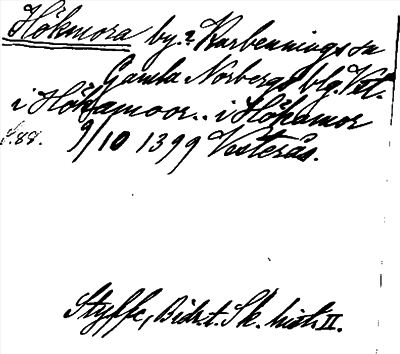 Hökmora by. i Karbennings sn
Gamla Norbergs blg. Vst.
i Hökamoor.. i Hökamor
S. 88. 9/10 1399 Vesterås.
Styffe, Bidr. t. Sk. hist. II.